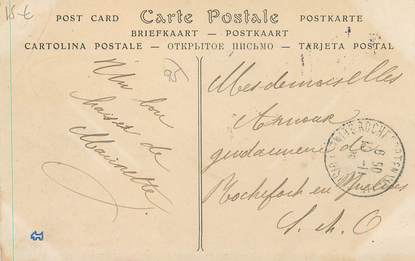 15 €
POST CARD Carte Postale POSTKARTE
BRIEFKAART — POSTKAART
CARTOLINA POSTALE — ОТКРЫТОЕ ПИСЬМО — TARJETA POSTAL
Un bon
baiser de
Marinette
Mesdemoiselles
Arnoux
gendarmerie de
Rochefort en Yvelines
S. et O.